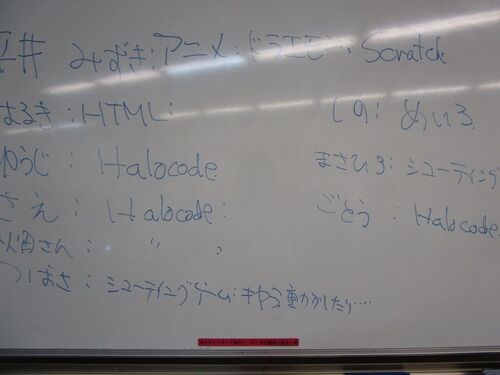 平井 みずき:アニメ:ドラエモン:Scratch
はるき:HTML:
しの:めいろ
ゆうじ:Halocode
まさひろ:シューティング
さえ:Halocode:
ごとう:Halocode
さん:〃
つばさ:シューティングゲーム:キャラ動かしたり‥‥